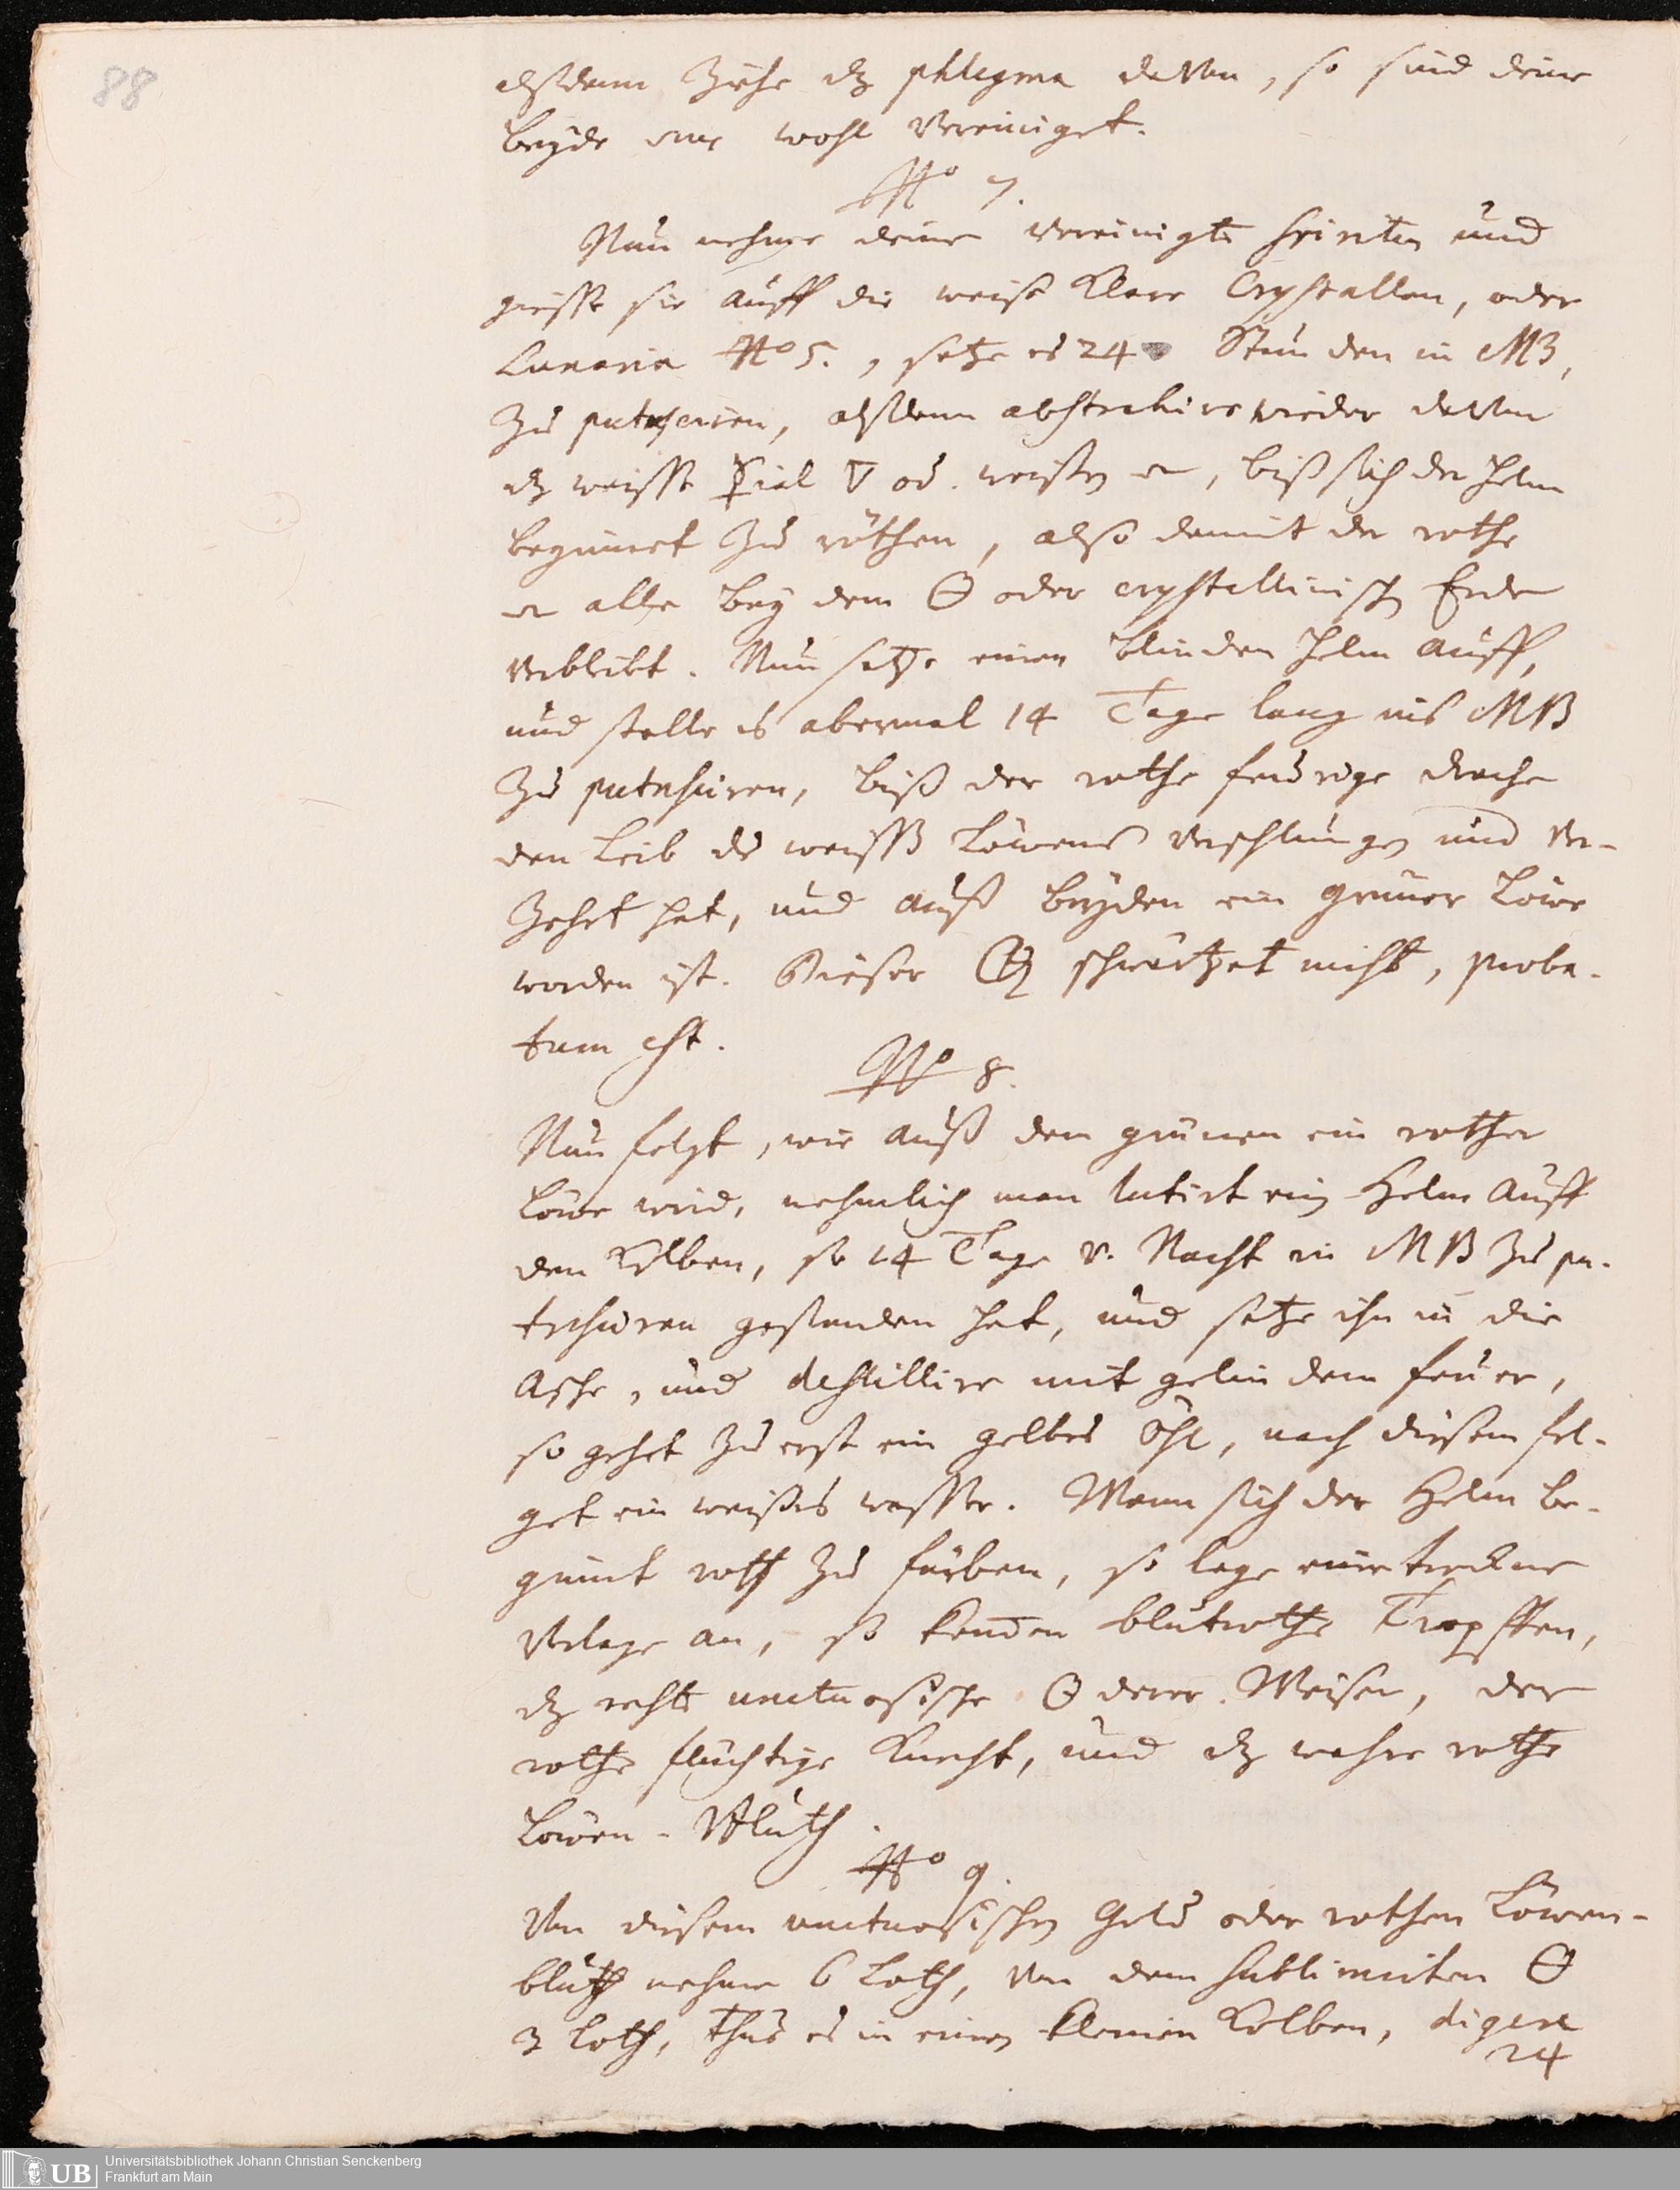 88
alßdann Ziehe dz phlegma davon, so sind deine
beyde wohl Vereiniget.
No 7.
Nun nehme deine vereinigte spiritus und
giesse sie auff die weise Klare Crystallen, oder
Lunaria No 5., setze es 24 Stunden in MB,
Zu putreficiren, alßdann abstrahire wieder davon
dz weisse 🜄 od. weißen, biß sich der Helm
beginnet Zu röthen, also damit der rothe
alle bey dem 🜔 oder crystallinisch Erde
verbleibt. Nun setze einen blinden Helm auff,
und stelle es abermal 14 Tage lang ins MB
Zu putreficiren, biß der rothe feurige drache
den Leib des weissen Löwens verschlungen und ver-
Zehrt hat, und auß beyden ein grüner Löwe
worden ist. Dieser schwärtzet nicht, proba-
tum est.
No 8.
Nun folgt, wie auß dem grünen ein rother
Löwe wird, nehmlich man lutirt ein Helm auff
den Kolben, so 14 Tage v. Nacht in MB Zu pu-
treficiren gestanden hat, und setze ihn in die
Asche, und destillire mit gelindem feuer,
so gehet Zu erst ein gelbes Öhl, nach diesem fol-
get ein weißes wasser. Wann sich der Helm be-
ginnet roth Zu färben, so lege eine trockne
Vorlage an, so blutrothe Tropffen,
dz rechte unctuosische 🜔 derer Weisen, der
rothe flüchtige Knecht, und dz wahre rothe
Löwen-Bluth.
No 9.
Von diesem unctuosischen Gold oder rothen Löwen-
bluth nehme 6 Loth, Von dem sublimirten 🜔
3 Loth, thue es in einen kleinen Kolben, digere
24
Universitätsbibliothek Johann Christian Senckenberg
UB Frankfurt am Main